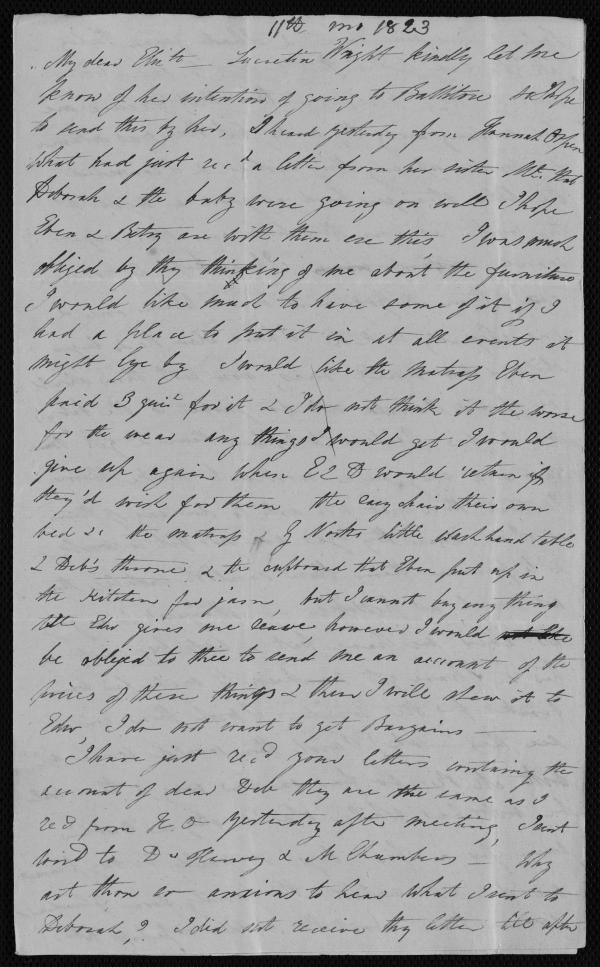 11th mo 1823
My dear Eliz:th — Lucretia Wright kindly let me
know of her intention of going to Ballitore so I hope
to send this by her, I heard yesterday from Hannah
what had just rec:d a letter from her sister that
Deborah & the baby were going on well I hope
Eben & Betsy are with them ere this, I was much
obliged by thy thinking of me about the furniture
I would like much to have some of it if I
had a place to put it in at all events it
might lye by I would like the matrass Eben
paid 3 gui:s for it & I do not think it the worse
for the wear any things I would get I would
give up again when E & D would return if
they'd wish for them the easy chair their own
bed & the matrass & little wash hand table
& Deb's throne & the cupboard that Eben put up in
the Kitchen for jars, but I cannot buy any thing
till Edw gives me leave, however I would
be obliged to thee to send me an account of the
prices of these things & then I will shew it to
Edw, I do not want to get Bargains —
I have just rec:d your letters containing the
account of dear Deb they are the same as I
rec:d from H. O yesterday after meeting, I sent
word to D Harvey & M Chambers — Why
art thou so anxious to hear what I sent to
Deborah,? I did not receive thy letter till after